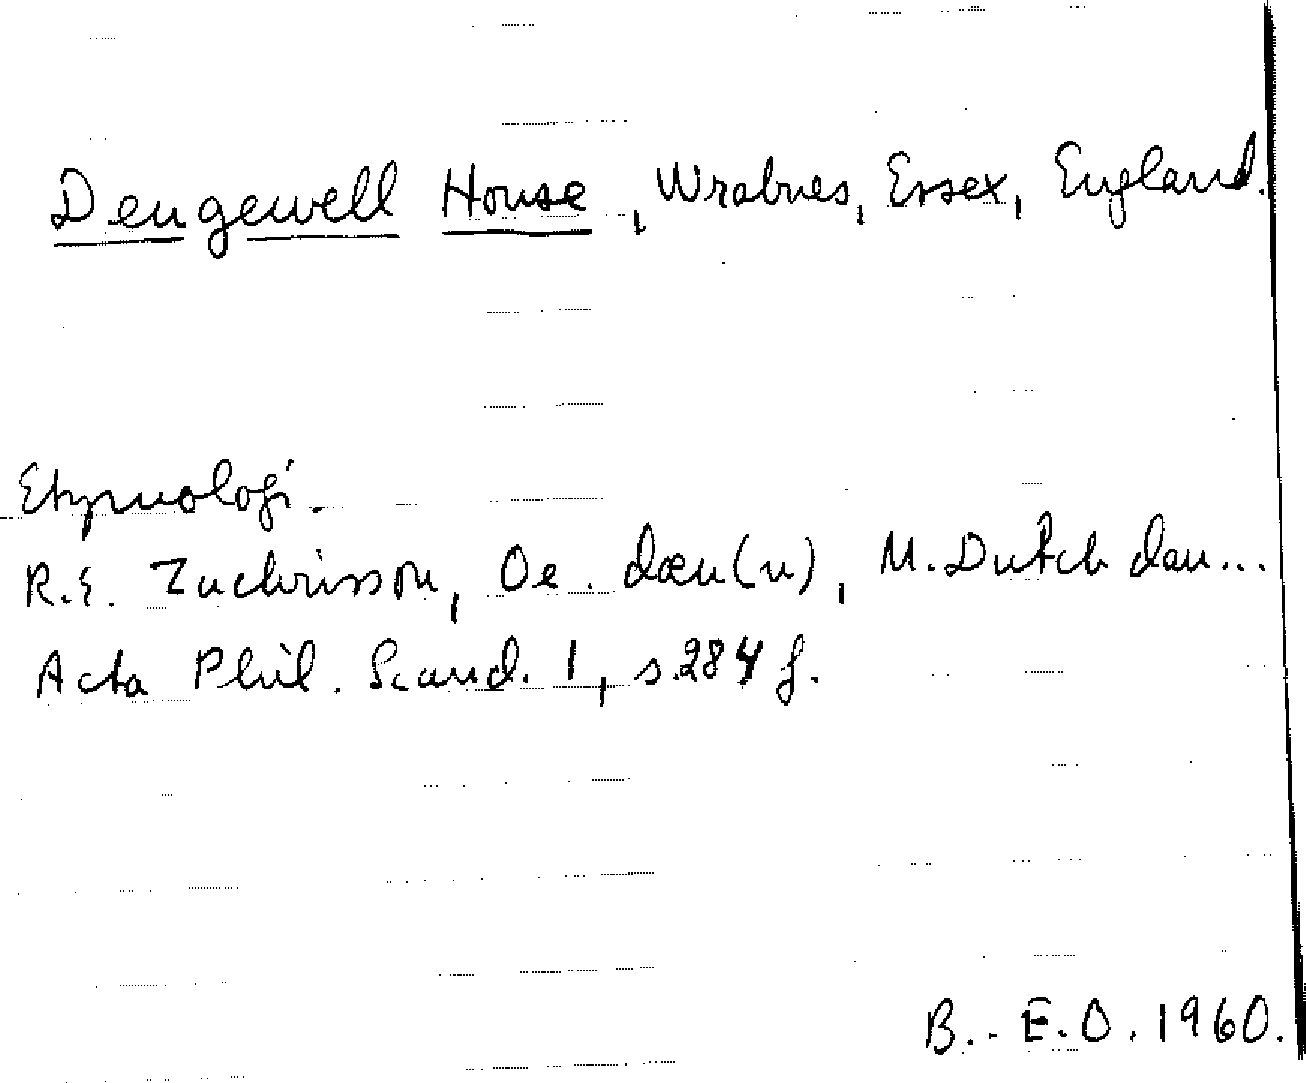 Dengewell House, Wrabnes, Essex, England.
Etymologi.
R.E. Zachrisson, Oe. dæn(n), M. Dutch dan...
Acta Phil. Scand. 1, s. 284 f.
B.-E.O. 1960.